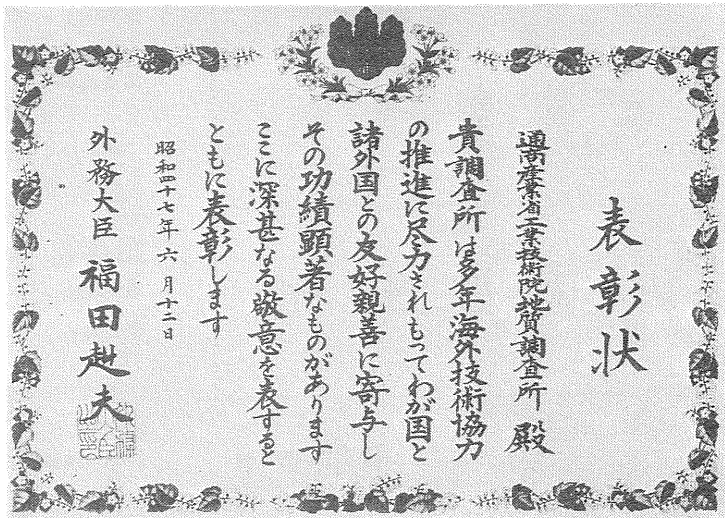 表彰状
通商産業省工業技術院地質調査所 殿
貴調査所は多年海外技術協力
の推進に尽力されもってわが国と
諸外国との友好親善に寄与し
その功績顕著なものがあります
ここに深甚なる敬意を表すると
ともに表彰します
昭和四十七年六月十二日
外務大臣 福田赳夫